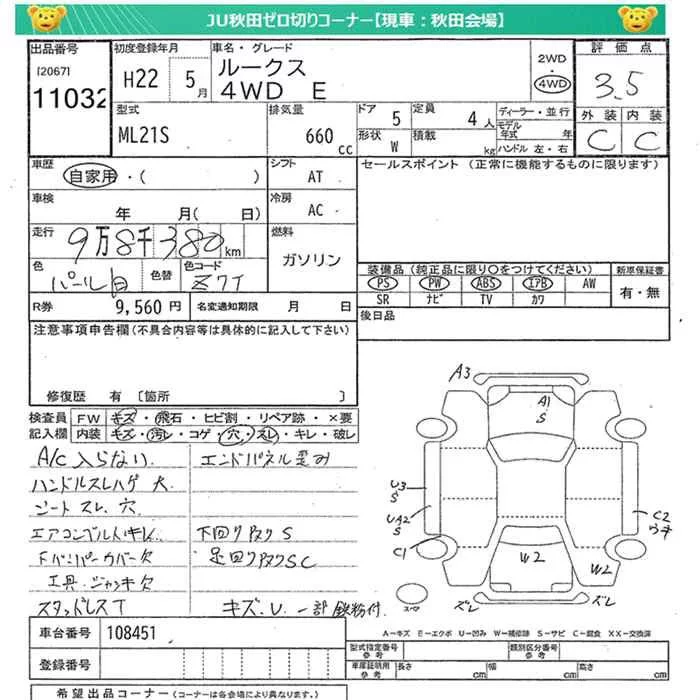 JU秋田ゼロ切りコーナー【現車：秋田会場】
出品番号 初度登録年月 車名・グレード 2WD ・ 4WD 評価点
[2067] 11032 H22 5月 ルークス 4WD E 3.5
型式 排気量 ドア 5 定員 4人 ディーラー・並行 外装 内装
ML21S 660cc 形状 W 積載 kg モデル年式 年 ハンドル 左・右 C C
車歴 自家用・( ) シフト AT セールスポイント (正常に機能するものに限ります)
車検 年 月(日) 冷房 AC
走行 9万8千380km 燃料 ガソリン
色 パール白 色替 色コード Z7T 装備品 (純正品に限り○をつけてください) 新車保証書
PS PW ABS エアB AW 有・無
SR ナビ TV カワ
R券 9,560円 名変通知期限 月 日 後日品
注意事項申告欄(不具合内容等は具体的に記入して下さい)
修復歴 有 [箇所 ]
検査員 FW キズ・飛石・ヒビ割・リペア跡・×要
記入欄 内装 キズ・汚レ・コゲ・穴・スレ・キレ・破レ
A/C 入らない エンドパネル歪み
ハンドルスレハゲ大
シートスレ、穴
エアコンベルトキレ 下回りサビ S
下バンパーカバー欠 足回りサビ SC
工具・ジャッキ欠
スタッドレスT キズ.U.一部鉄粉付
A3
A1
S
U3
S
UA2
S
C1
C2
ウキ
W2
W2
スーマ
ズレ
ズレ
A－キズ E－エクボ U－凹み W－補修跡 S－サビ C－腐食 XX－交換済
車台番号 108451 型式指定番号 参考 類別区分番号 参考
登録番号 車庫証明用 参考 長さ cm 幅 cm 高さ cm
希望出品コーナー (コーナーは各会場により異なります。)